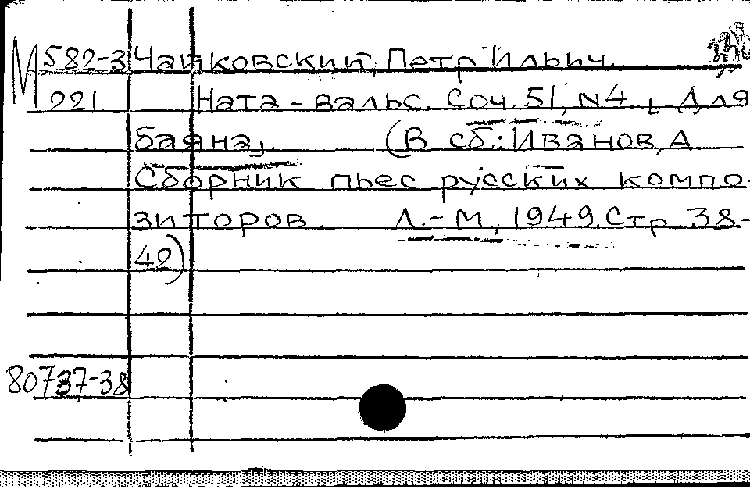 М 582-3 Чайковский, Петр Ильич
221 Ната-вальс. Соч. 51, N4. [Для
баяна] (В сб.: Иванов, А.
Сборник пьес русских компо-
зиторов Л.-М., 1949. Стр. 38-
42)
80737-38